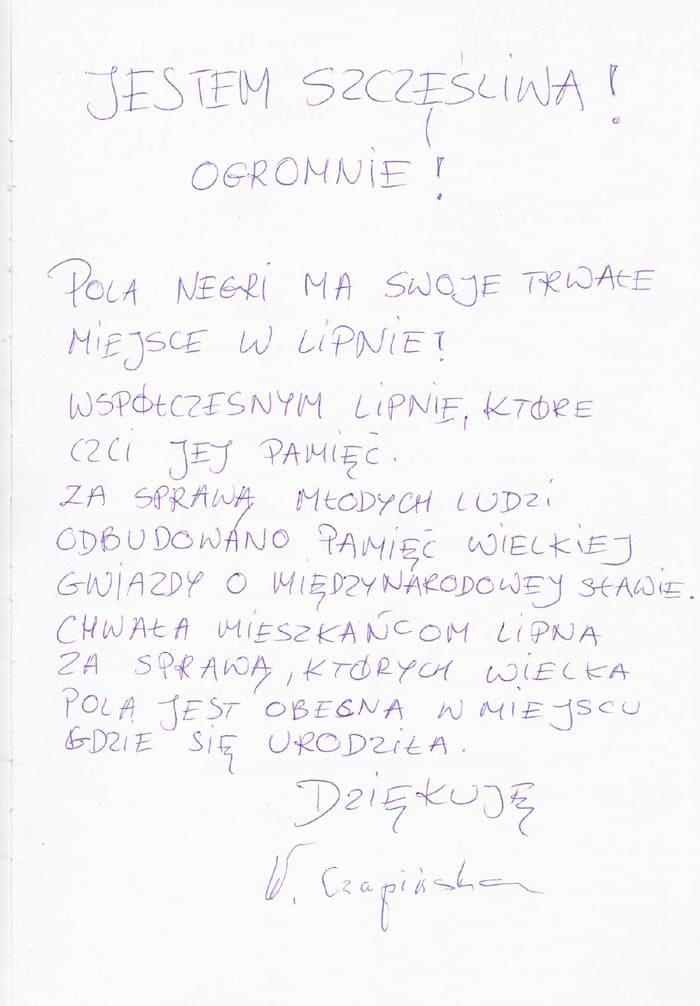 JESTEM SZCZĘŚLIWA!
OGROMNIE!
POLA NEGRI MA SWOJE TRWAŁE
MIEJSCE W LIPNIE!
WSPÓŁCZESNYM LIPNIE, KTÓRE
CZCI JEJ PAMIĘĆ.
ZA SPRAWĄ MŁODYCH LUDZI
ODBUDOWANO PAMIĘĆ WIELKIEJ
GWIAZDY O MIĘDZYNARODOWEJ SŁAWIE.
CHWAŁA MIESZKAŃCOM LIPNA
ZA SPRAWĄ, KTÓRYCH WIELKA
POLA JEST OBECNA W MIEJSCU
GDZIE SIĘ URODZIŁA.
DZIĘKUJĘ
W. Czapińska